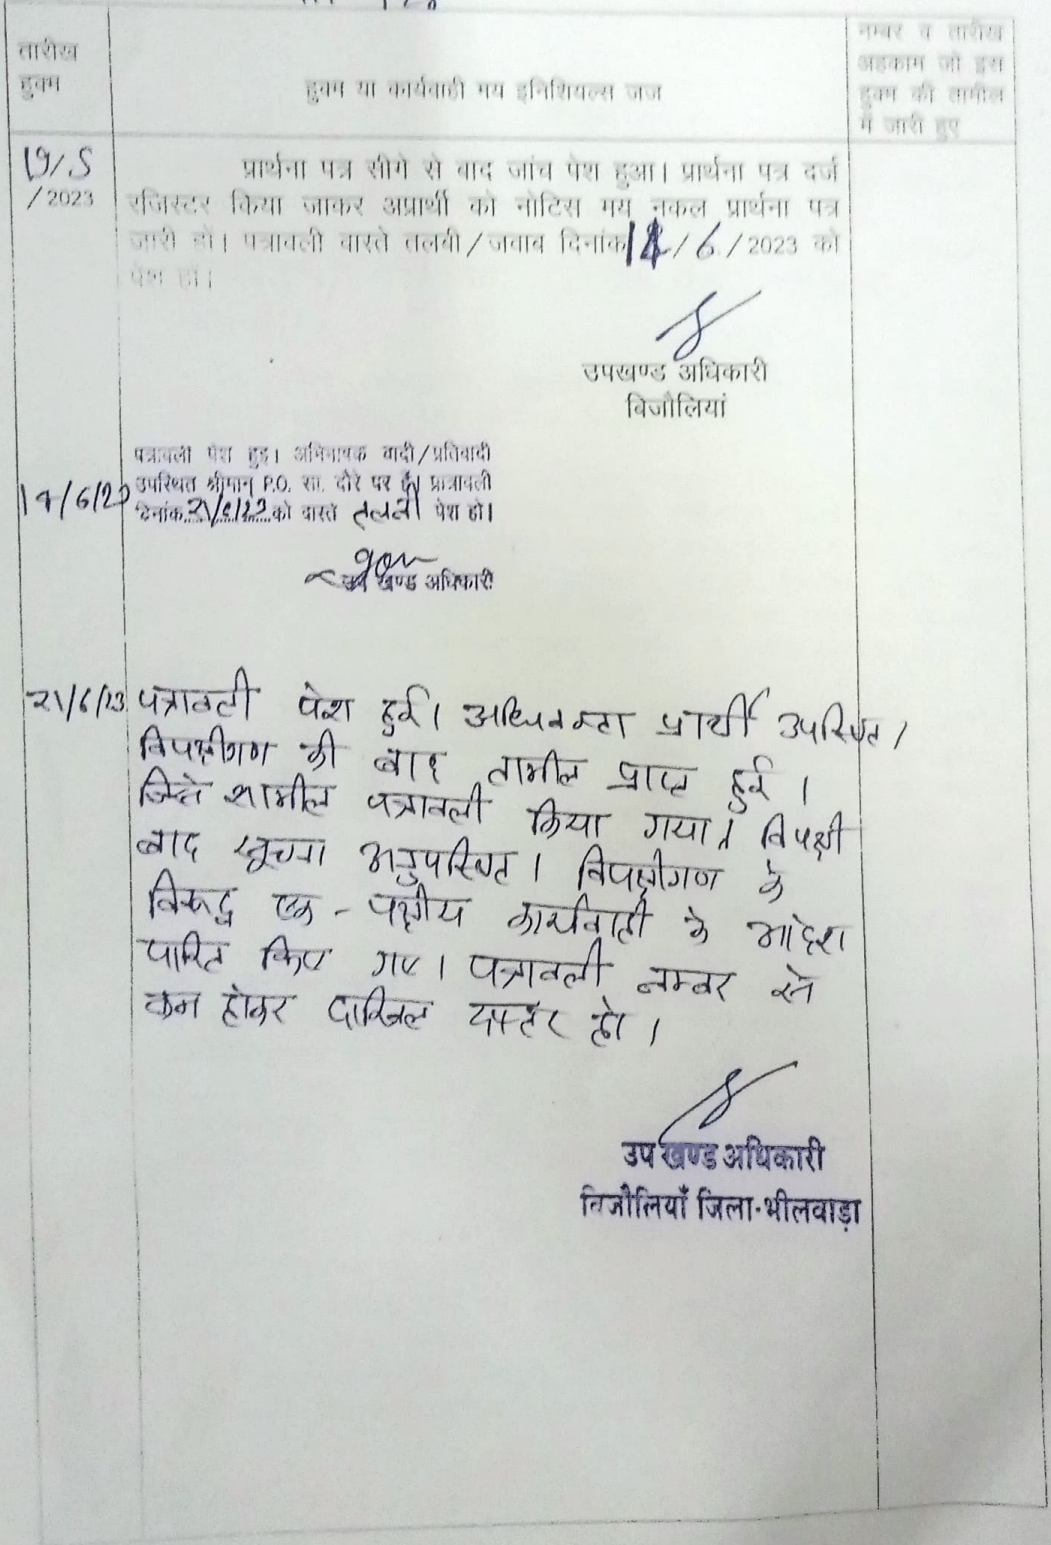 तारीख
हुक्म
हुक्म या कार्यवाही मय इनिशियल्स जज
नम्बर व तारीख
अहकाम जो इस
हुक्म की तामील
में जारी हुए
19/5
/2023
प्रार्थना पत्र सीगे से बाद जांच पेश हुआ। प्रार्थना पत्र दर्ज
रजिस्टर किया जाकर अप्रार्थी को नोटिस मय नकल प्रार्थना पत्र
जारी हो। पत्रावली वास्ते तलबी/जवाब दिनांक 14/6/2023 को
पेश हो।
उपखण्ड अधिकारी
बिजौलियां
14/6/23
पत्रावली पेश हुइ। अभिभाषक वादी/प्रतिवादी
उपस्थित श्रीमान् P.O. सा. दौरे पर हैं। प्रात्रावली
दिनांक 21/6/23 को वास्ते तलबी पेश हो।
उप खण्ड अधिकारी
21/6/23
पत्रावली पेश हुई। अधिवक्ता प्रार्थी उपस्थित।
विपक्षीगण की बाद तामील प्राप्त हुई।
जिसे शामील पत्रावली किया गया। विपक्षी
बाद सूचना अनुपस्थित। विपक्षीगण के
विरूद्ध एक-पक्षीय कार्यवाही के आदेश
पारित किए गए। पत्रावली नम्बर से
कम होकर दाखिल दफ्तर हो।
उप खण्ड अधिकारी
बिजौलियाँ जिला-भीलवाड़ा